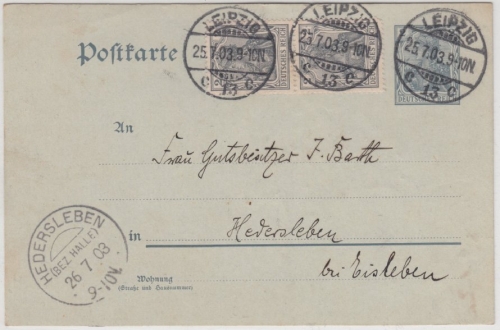 Postkarte
LEIPZIG
25.7.03.9-10N.
C 13 C.
DEUTSCHES REICH
LEIPZIG
25.7.03.9-10N.
C 13 C.
LEIPZIG
25.7.03.9-10N.
C 13 C.
An
Frau Gutsbesitzer F. Barth
in Hedersleben
bei Eisleben
HEDERSLEBEN
(BEZ. HALLE)
26 7 03
9-10V.
Wohnung
(Straße und Hausnummer)